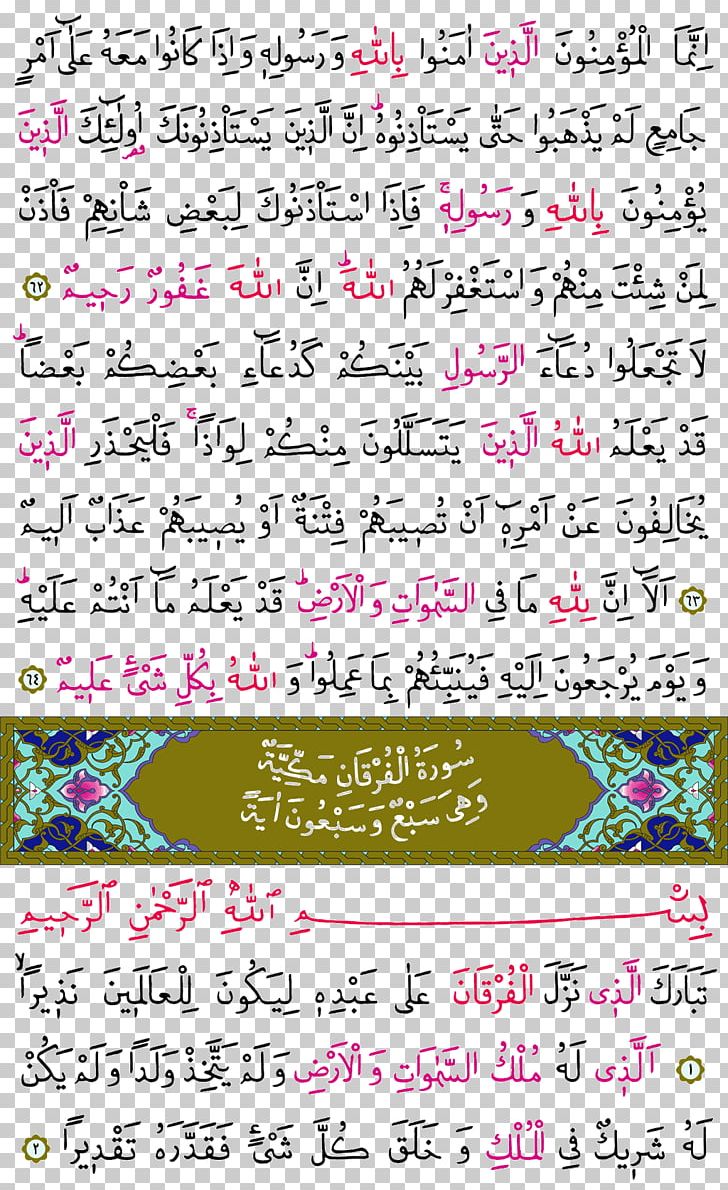 اِنَّمَا الْمُؤْمِنُونَ الَّذ۪ينَ اٰمَنُوا بِاللّٰهِ وَرَسُولِه۪ وَاِذَا كَانُوا مَعَهُ عَلٰٓى اَمْرٍ
جَامِعٍ لَمْ يَذْهَبُوا حَتّٰى يَسْتَأْذِنُوهُۜ اِنَّ الَّذ۪ينَ يَسْتَأْذِنُونَكَ اُو۬لٰٓئِكَ الَّذ۪ينَ
يُؤْمِنُونَ بِاللّٰهِ وَرَسُولِه۪ۚ فَاِذَا اسْتَأْذَنُوكَ لِبَعْضِ شَأْنِهِمْ فَأْذَنْ
لِمَنْ شِئْتَ مِنْهُمْ وَاسْتَغْفِرْ لَهُمُ اللّٰهَۜ اِنَّ اللّٰهَ غَفُورٌ رَح۪يمٌ ٦٢
لَا تَجْعَلُوا دُعَٓاءَ الرَّسُولِ بَيْنَكُمْ كَدُعَٓاءِ بَعْضِكُمْ بَعْضاًۜ
قَدْ يَعْلَمُ اللّٰهُ الَّذ۪ينَ يَتَسَلَّلُونَ مِنْكُمْ لِوَاذاًۚ فَلْيَحْذَرِ الَّذ۪ينَ
يُخَالِفُونَ عَنْ اَمْرِه۪ٓ اَنْ تُص۪يبَهُمْ فِتْنَةٌ اَوْ يُص۪يبَهُمْ عَذَابٌ اَل۪يمٌ
٦٣ اَلَٓا اِنَّ لِلّٰهِ مَا فِي السَّمٰوَاتِ وَالْاَرْضِۜ قَدْ يَعْلَمُ مَٓا اَنْتُمْ عَلَيْهِۜ
وَيَوْمَ يُرْجَعُونَ اِلَيْهِ فَيُنَبِّئُهُمْ بِمَا عَمِلُواۜ وَاللّٰهُ بِكُلِّ شَيْءٍ عَل۪يمٌ ٦٤
سُورَةُ الْفُرْقَانِ مَكِّيَّةٌ
وَهِيَ سَبْعٌ وَسَبْعُونَ اٰيَةً
بِسْمِ اللّٰهِ الرَّحْمٰنِ الرَّح۪يمِ
تَبَارَكَ الَّذ۪ي نَزَّلَ الْفُرْقَانَ عَلٰى عَبْدِه۪ لِيَكُونَ لِلْعَالَم۪ينَ نَذ۪يراًۙ
١ اَلَّذ۪ي لَهُ مُلْكُ السَّمٰوَاتِ وَالْاَرْضِ وَلَمْ يَتَّخِذْ وَلَداً وَلَمْ يَكُنْ
لَهُ شَر۪يكٌ فِي الْمُلْكِ وَخَلَقَ كُلَّ شَيْءٍ فَقَدَّرَهُ تَقْد۪يراً ٢